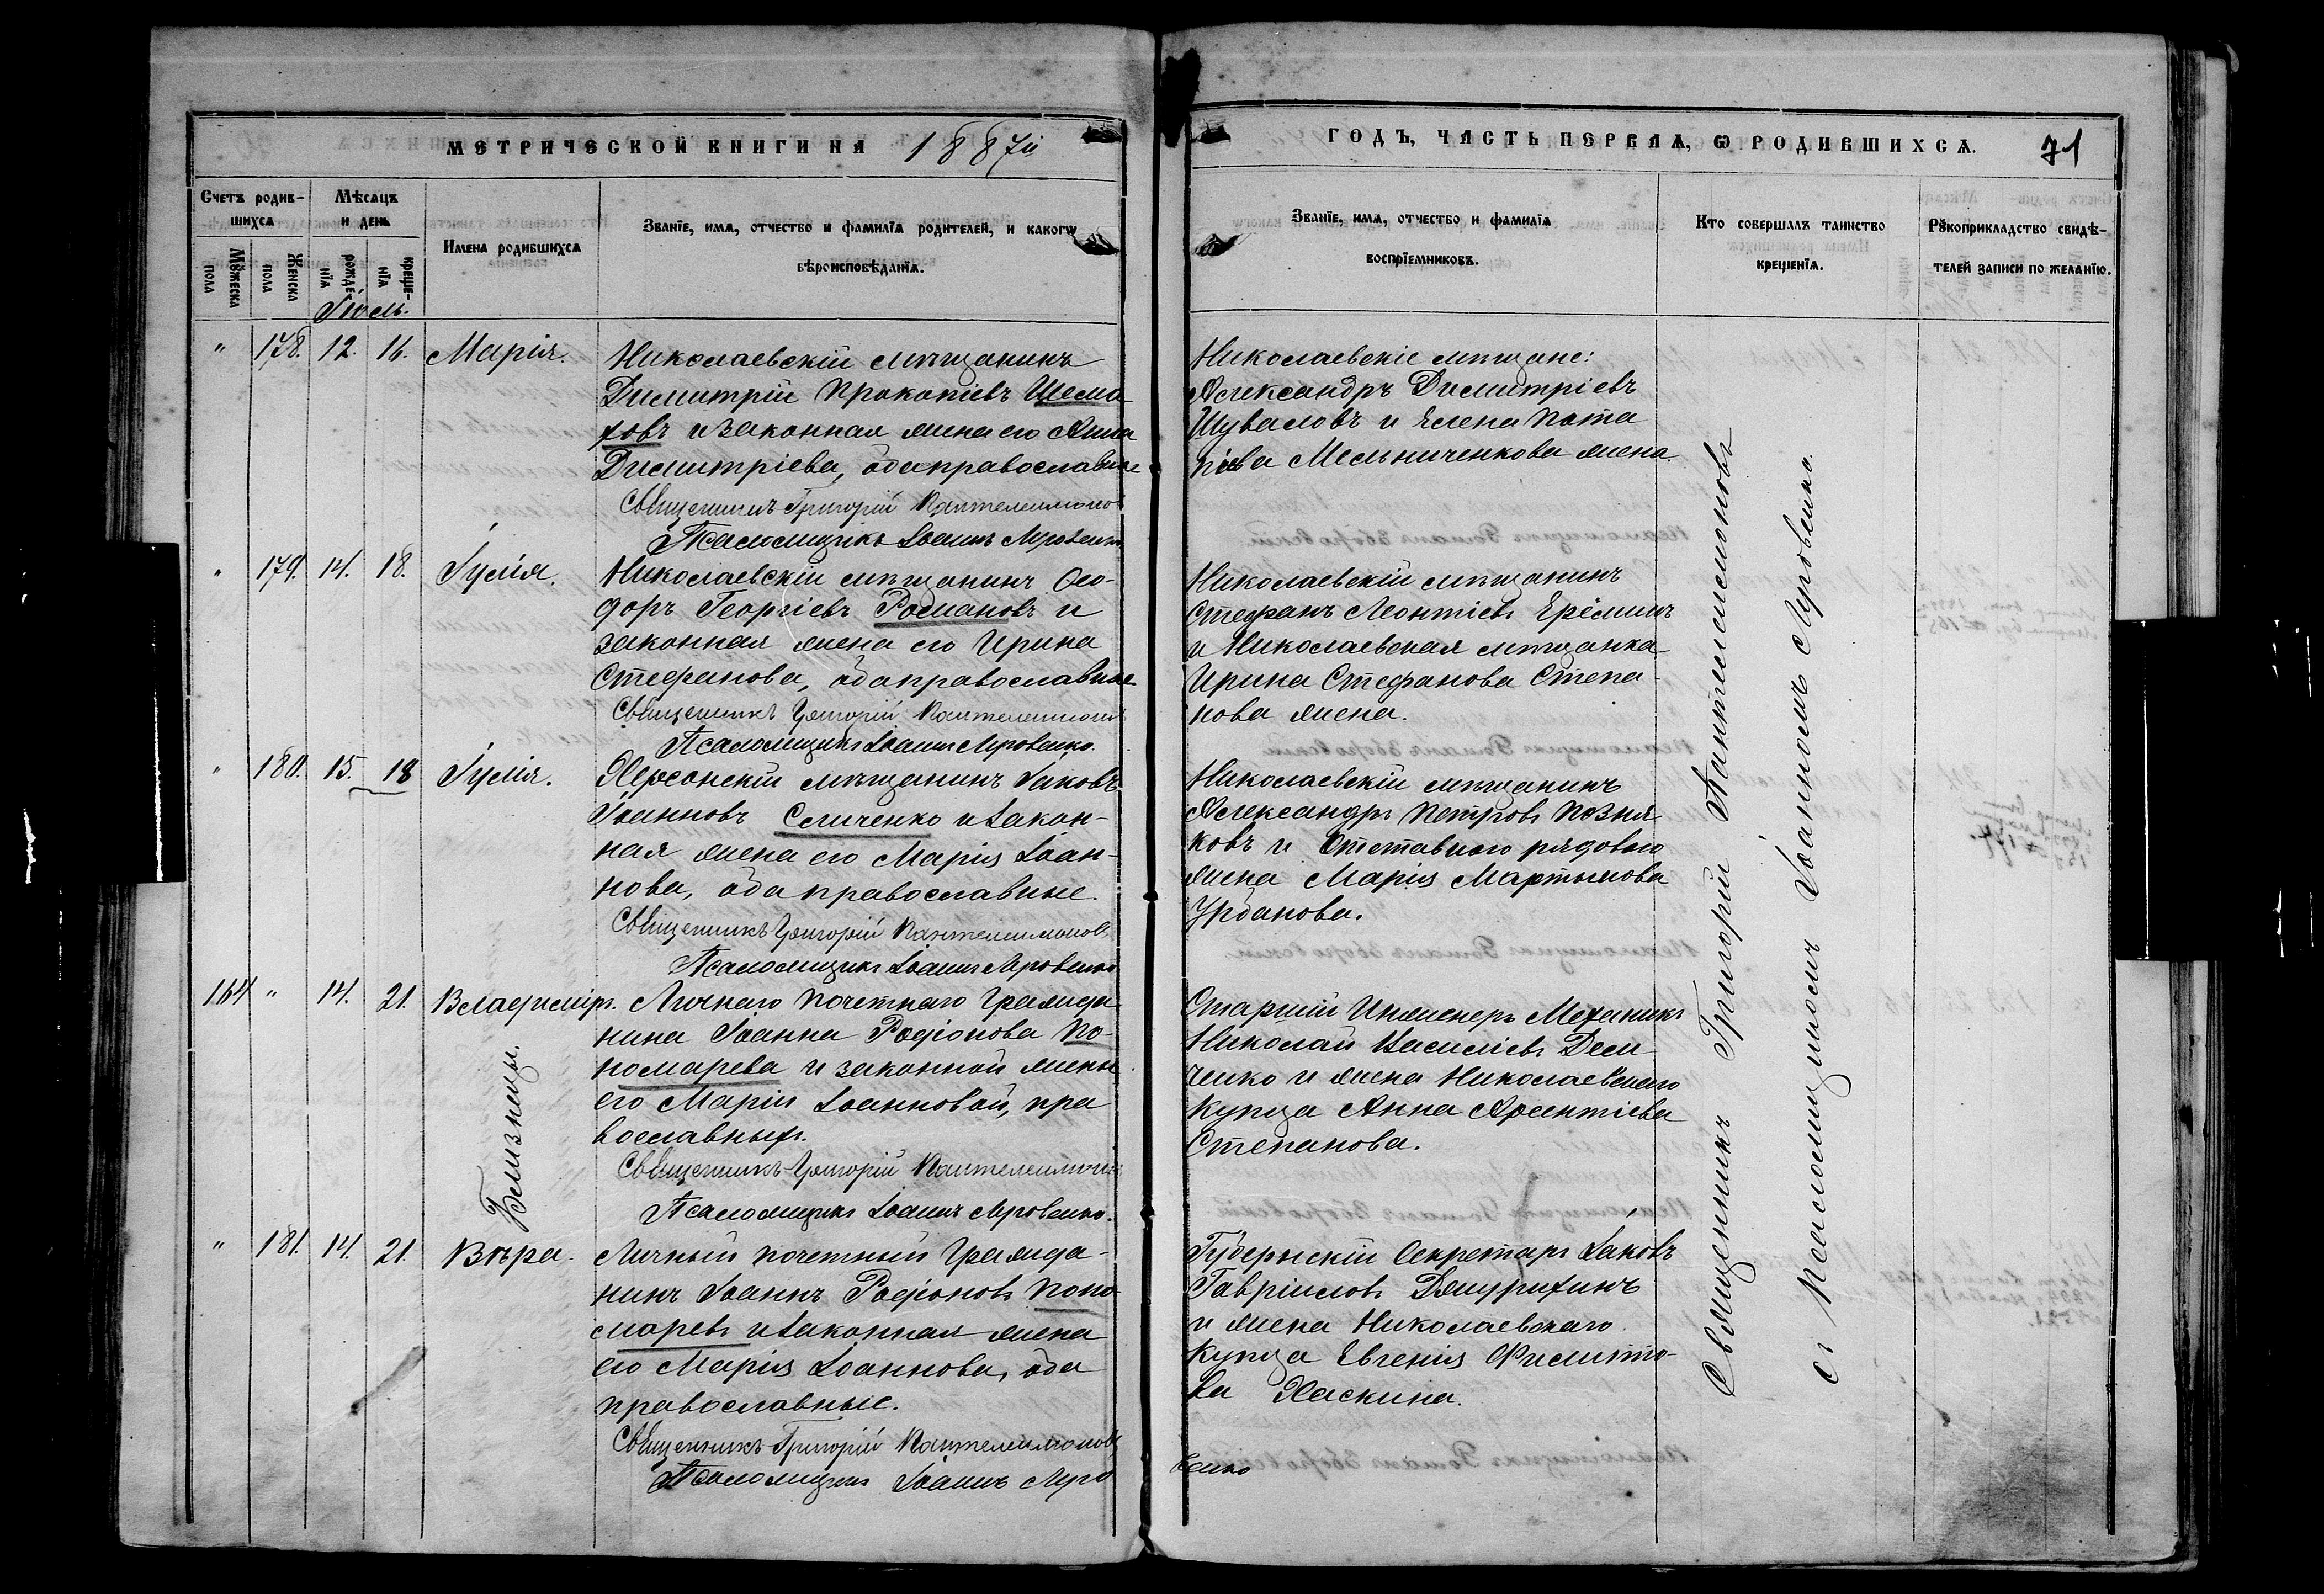 МЕТРИЧЕСКОЙ КНИГИ НА 1887й
ГОДЪ, ЧАСТЬ ПЕРВАЯ, Ѡ РОДИВШИХСЯ.
71
Счетъ родив-
шихся
Мѣсяцъ
и день
Имена родившихся
Званіе, имя, отчество и фамилія родителей, и какогѡ
вѣроисповѣданія.
Мꙋжеска
пола
Женска
пола
рожде-
нія
креще-
нія
Званіе, имя, отчество и фамилія
воспріемниковъ.
Кто совершалъ таинство
крещенія.
Рꙋкоприкладство свидѣ-
телей записи по желанію.
Іюль.
" 178. 12. 16. Марія.
Николаевскій мѣщанинъ
Димитрій Прокопіевъ Шема
ховъ и законная жена его Анна
Димитріева, оба православные
Священникъ Григорій Пантелеимонов
Псаломщикъ Іоаннъ Яровенко
Николаевскіе мѣщане:
Александръ Димитріевъ
Шуваловъ и Елена Пота
піева Мельниченкова жена.
" 179. 14. 18. Іулія.
Николаевскій мѣщанинъ Ѳео-
доръ Георгіевъ Романовъ и
законная жена его Ирина
Стефанова, оба православные
Священникъ Григорій Пантелеимонов
Псаломщикъ Іоаннъ Яровенко.
Николаевскій мѣщанинъ
Стефанъ Леонтіевъ Ерёминъ
и Николаевская мѣщанка
Ирина Стефанова Степа-
нова жена.
" 180. 15. 18 Іулія.
Херсонскій мѣщанинъ Іаковъ
Іоанновъ Сличенко и закон-
ная жена его Марія Іоан-
нова, оба православные.
Священникъ Григорій Пантелеимонов
Псаломщикъ Іоаннъ Яровенко
Николаевскій мѣщанинъ
Александръ Петровъ Позня
ковъ и Отставного рядового
жена Марія Мартынова
Урбанова.
164 " 14. 21. Владиміръ.
Близнецы.
Личнаго почетнаго Гражда
нина Іоанна Родіонова По-
номарева и законной жены
его Маріи Іоанновой, пра
вославныхъ.
Священникъ Григорій Пантелеимонов
Псаломщикъ Іоаннъ Яровенко.
Старшій Инженеръ Механикъ
Николай Василіевъ Дем
ченко и жена Николаевскаго
Купца Анна Арсентіева
Степанова.
" 181. 14. 21. Вѣра.
Личный почетный Гражда-
нинъ Іоаннъ Родіоновъ Поно-
маревъ и законная жена
его Марія Іоаннова, оба
православные.
Священникъ Григорій Пантелеимоновъ
Псаломщикъ Іоаннъ Яро
венко
Губернскій Секретарь Іаковъ
Гавріиловъ
и жена Николаевскаго
Купца Евгенія Филиппо-
ва Хаскина.
Священникъ Григорій Пантелеимоновъ
съ Псаломщикомъ Іоанномъ Яровенко.